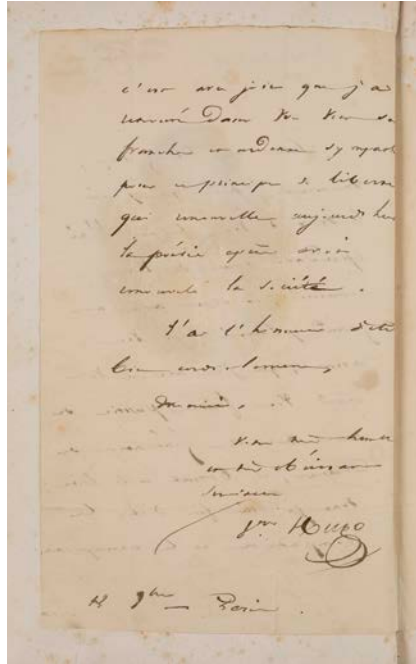 c'est avec joie que j'ai
trouvé dans vos vers une
franche et ardente sympathie
pour ce principe de liberté
qui renouvelle aujourd'hui
la poésie après avoir
renouvelé la société.
J'ai l'honneur d'être
bien cordialement,
Monsieur,
Votre très humble
et très obéissant
serviteur
Vor Hugo
9bre Paris.